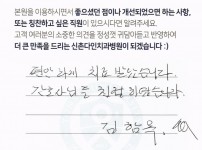 본원을 이용하시면서 좋으셨던 점이나 개선되었으면 하는 사항,
또는 칭찬하고 싶은 직원이 있으시다면 알려주세요.
고객 여러분의 소중한 의견을 정성껏 귀담아듣고 반영하여
더 큰 만족을 드리는 신촌다인치과병원이 되겠습니다 :)
편안하게 치료 받았습니다.
간호사님들 친절 하였습니다.
김함옥